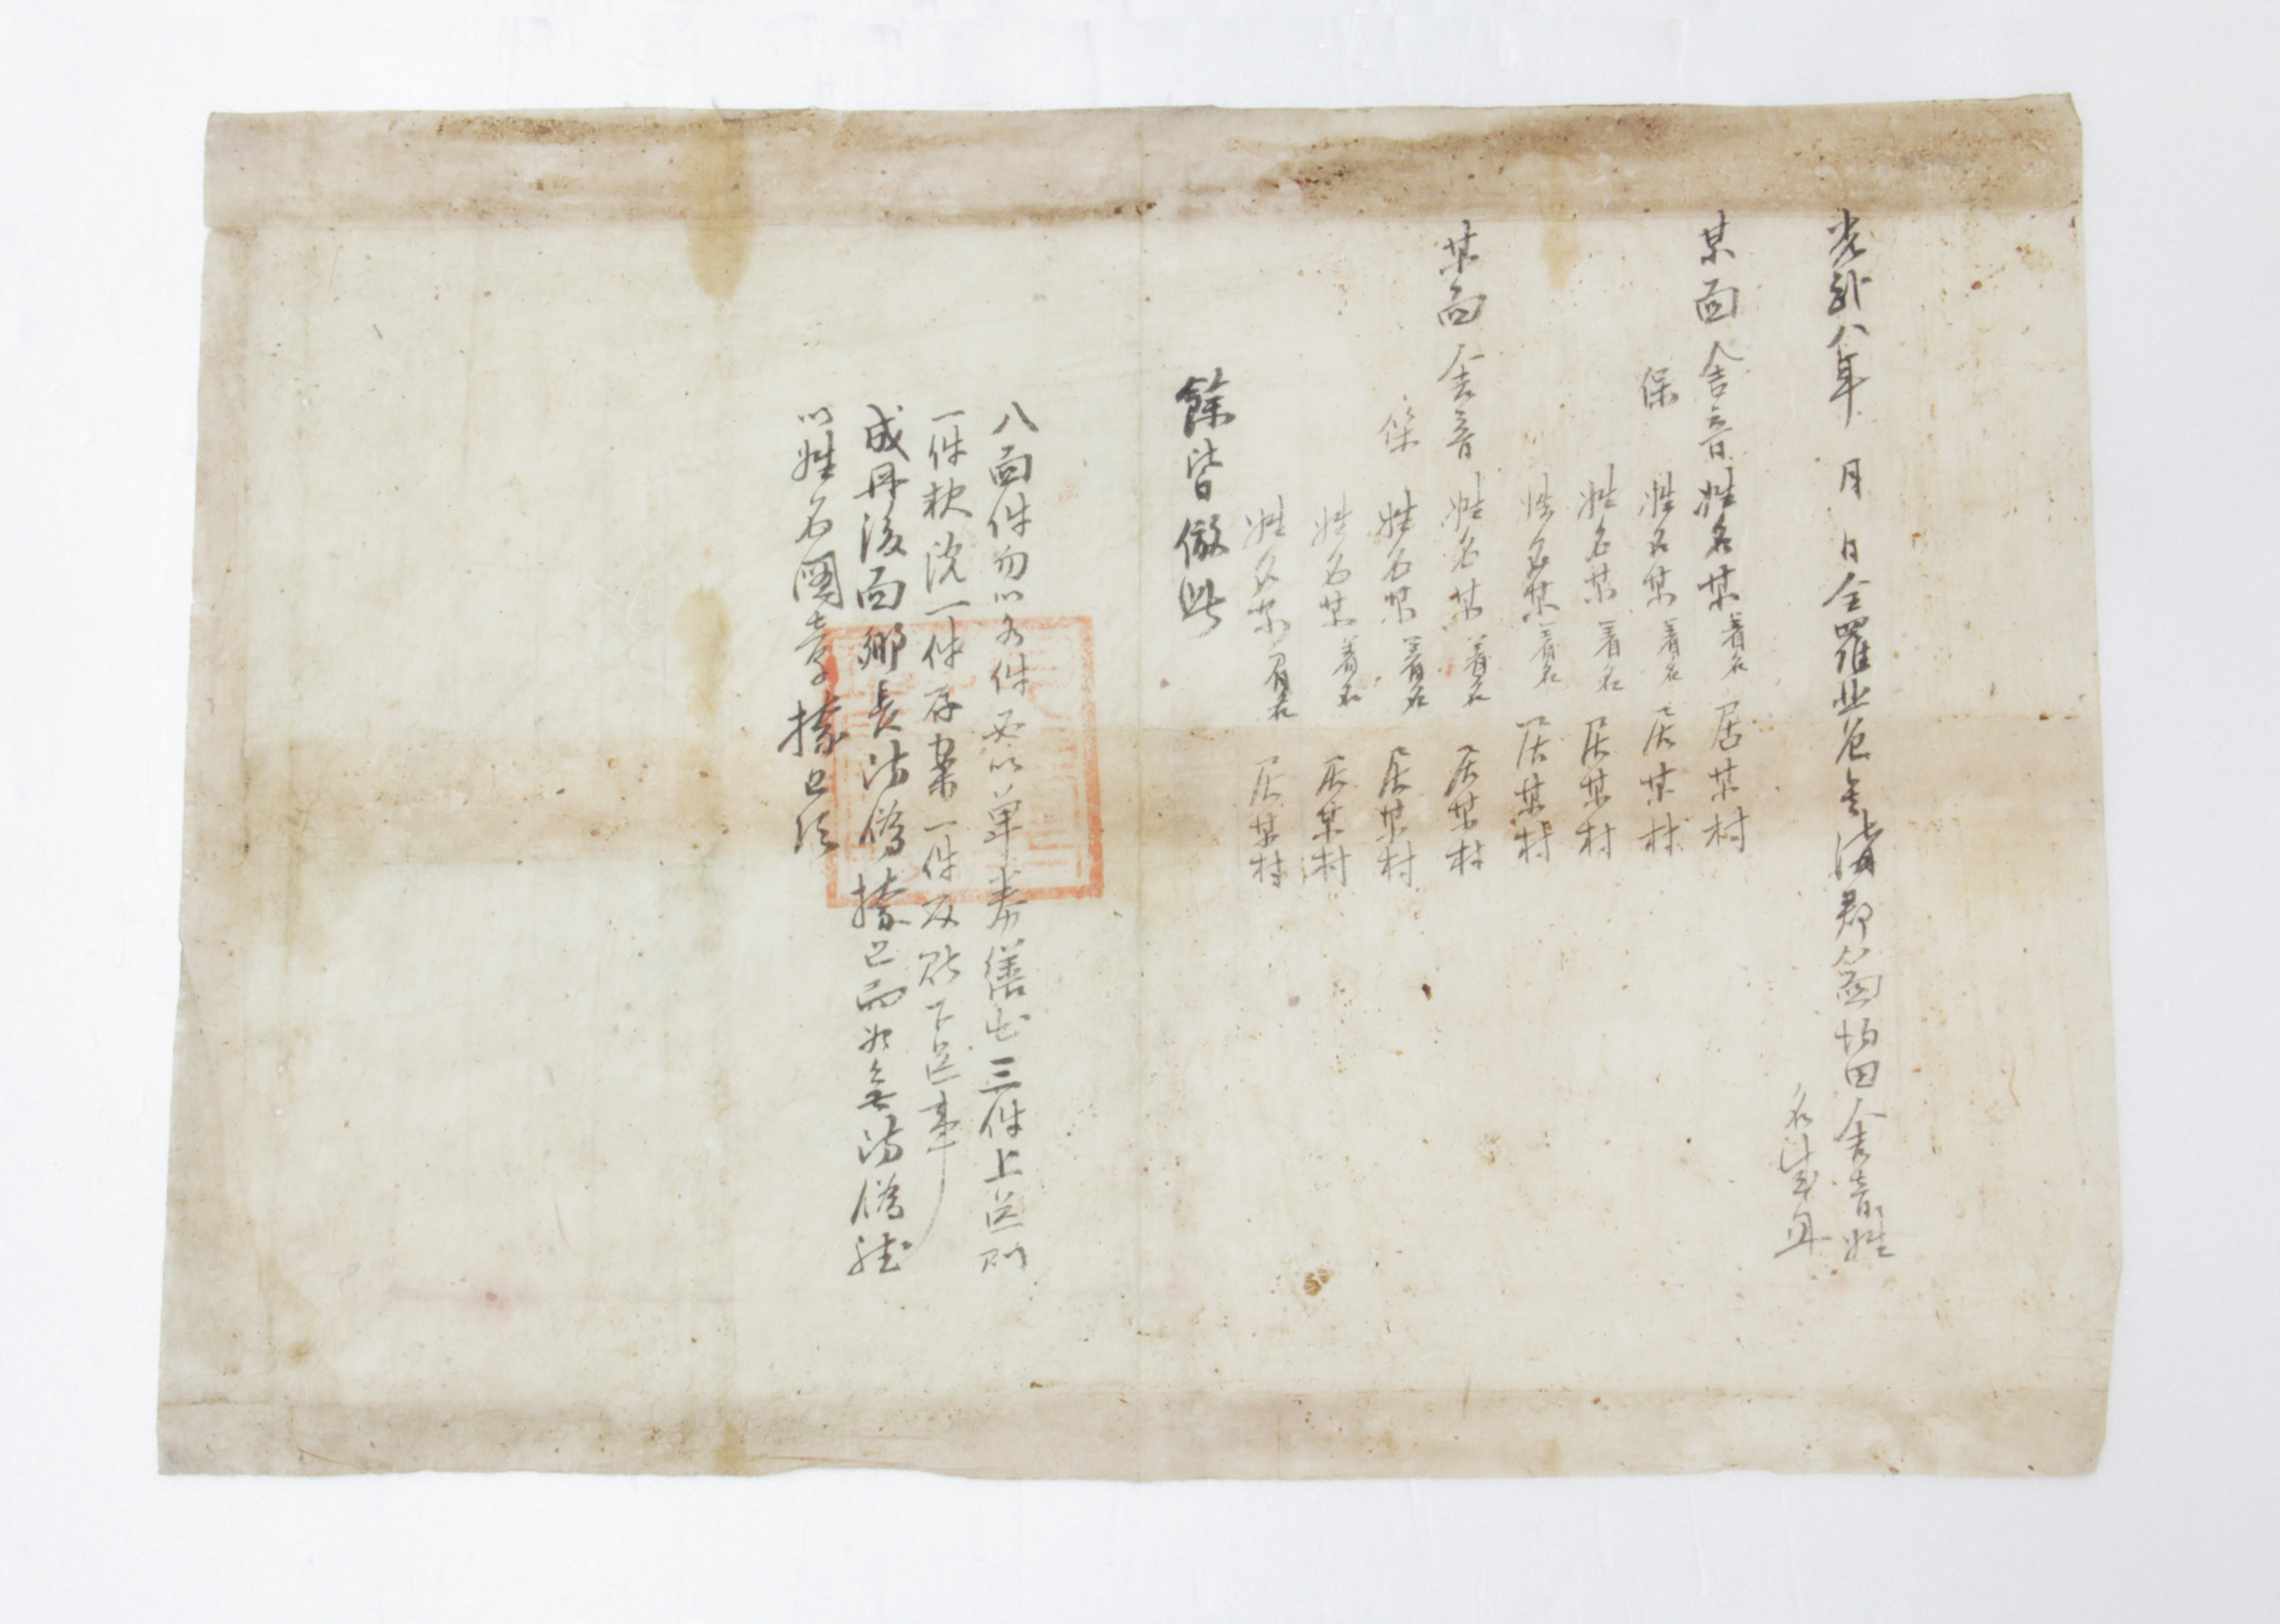 光武八年 月 日全羅北道金溝郡各面均田舍音姓
名成冊
某面舍音姓名某着名居某村
保姓名某着名居某村
姓名某着名居某村
姓名某着名居某村
某面舍音姓名某着名居某村
保姓名某着名居某村
姓名某着名居某村
姓名某着名居某村
餘皆倣此
八面件勿以各件必以單卷繕出三件上送則
一件 院一件存案一件 下送事
成冊後面鄕長 捺 而如無 
以姓名圖章捺